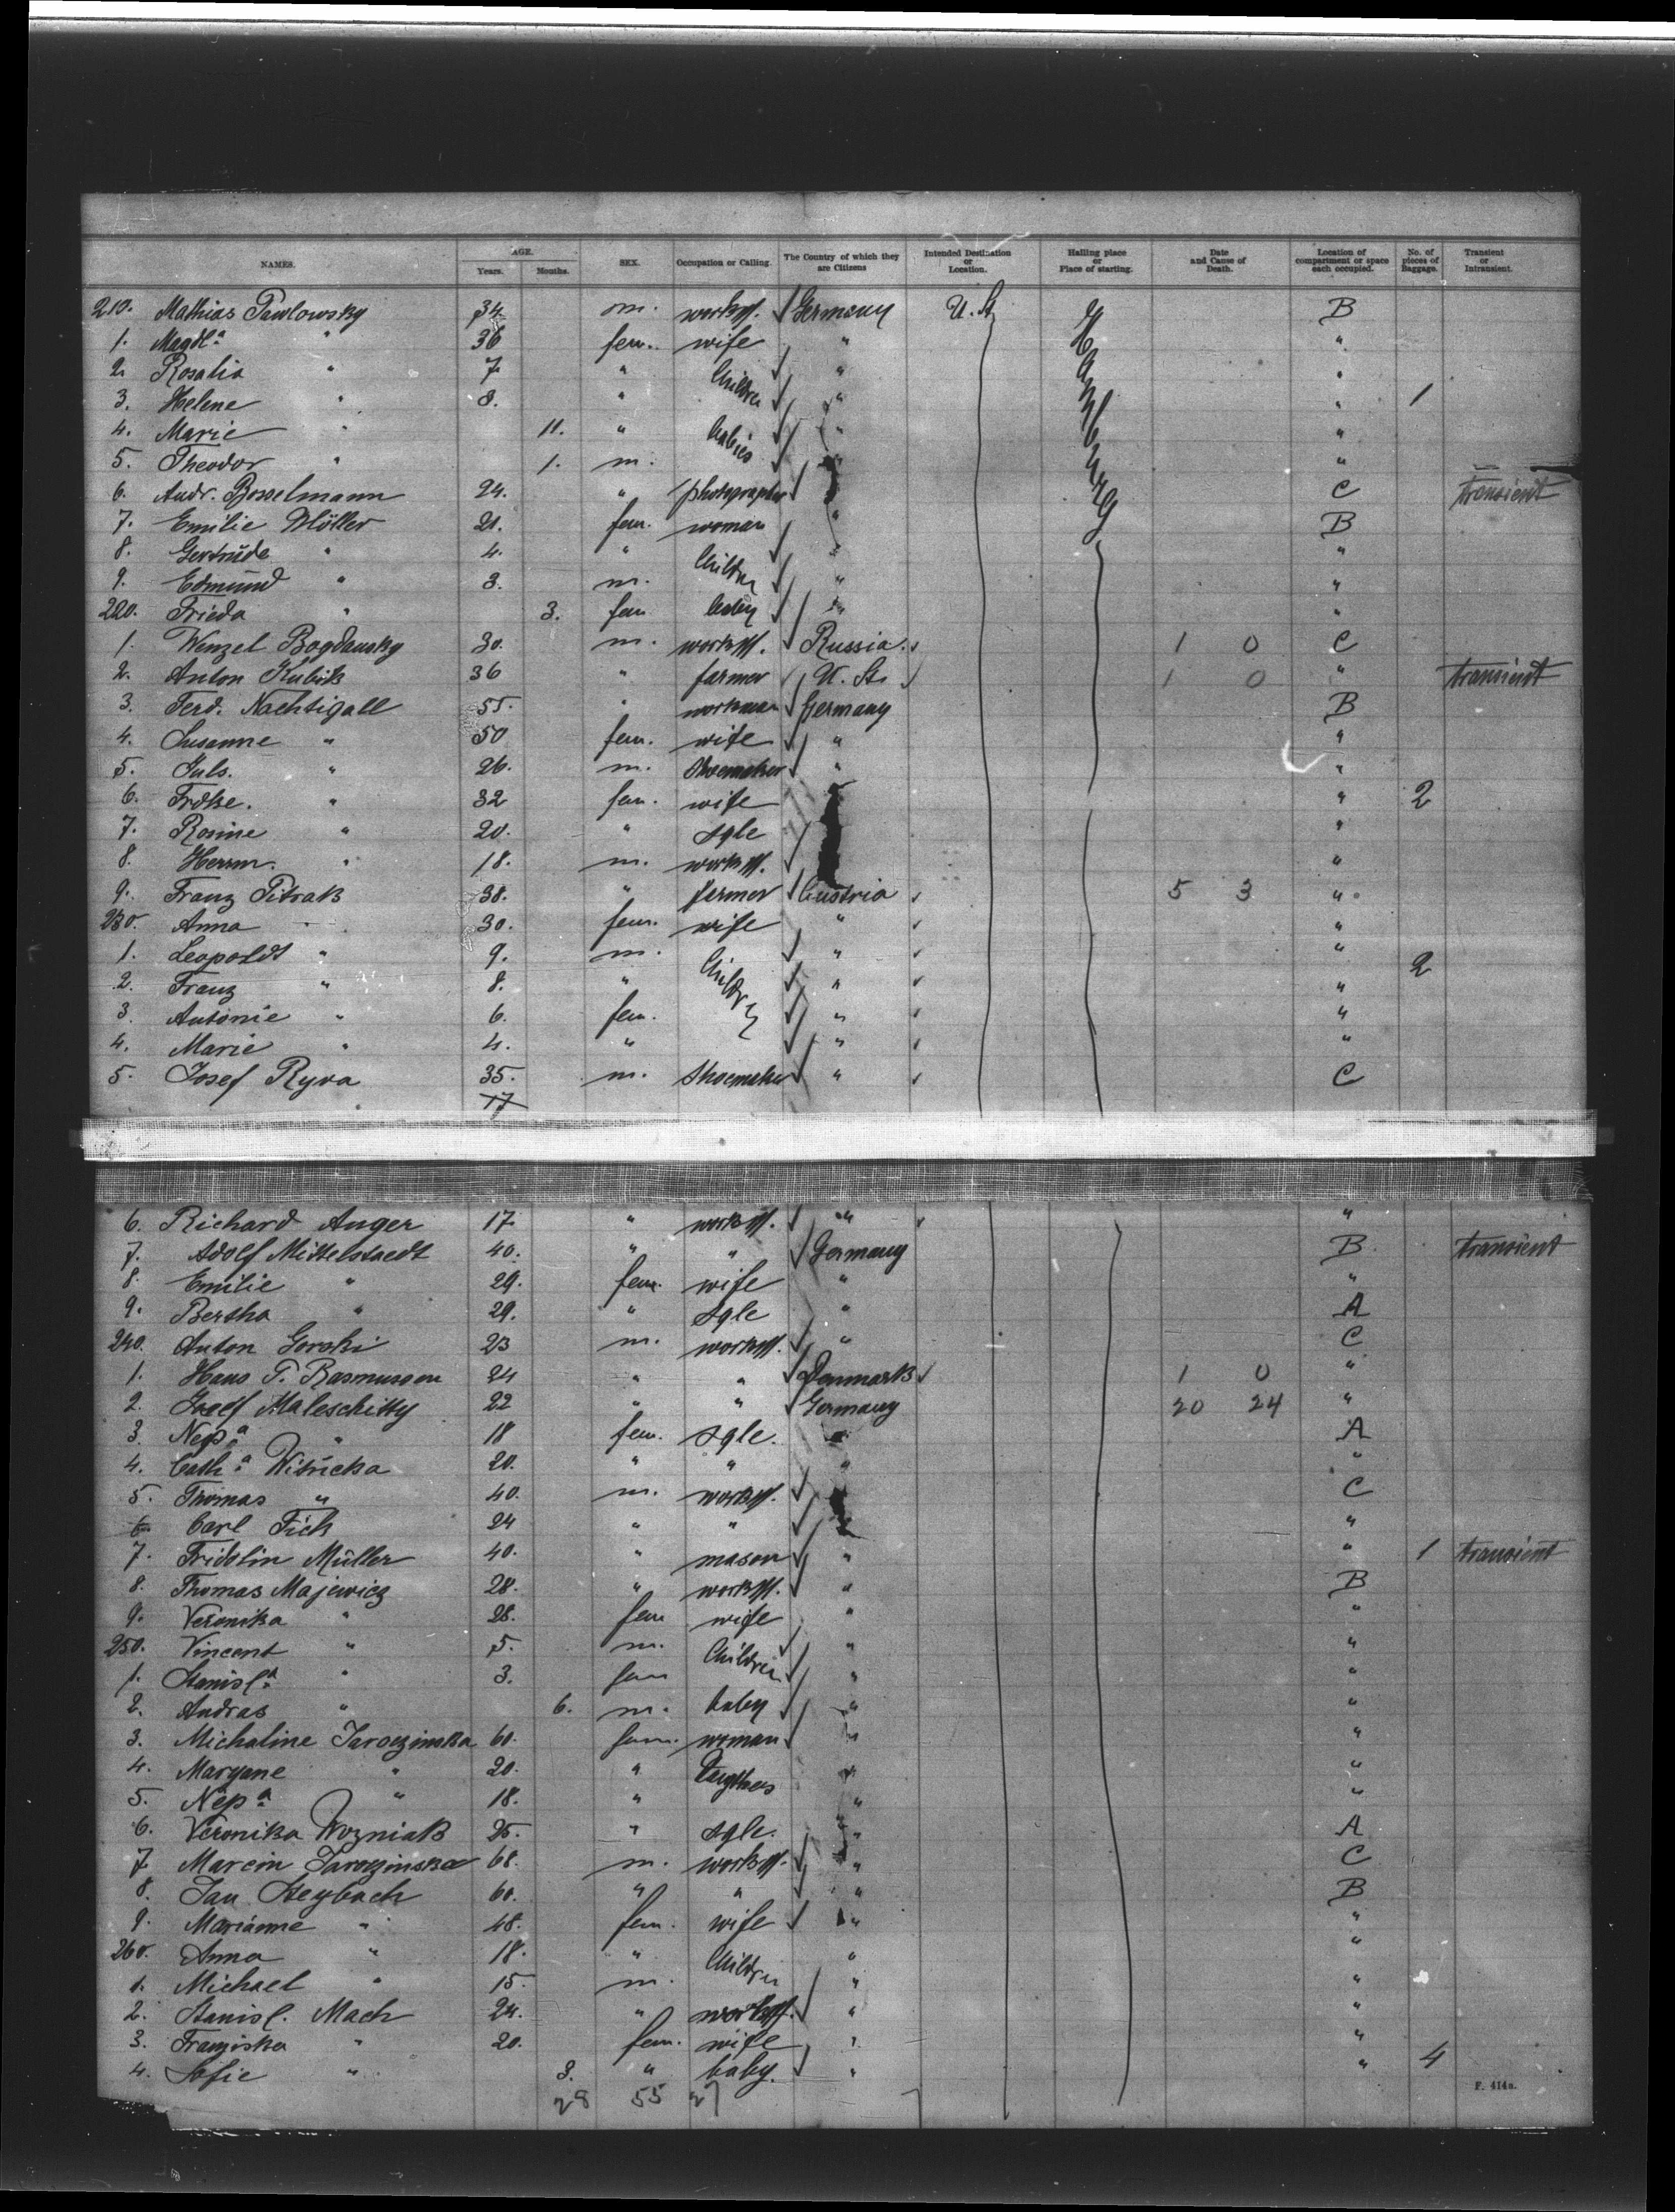 NAMES. AGE. Years. Months. SEX. Occupation or Calling. The Country of which they are Citizens Intended Destination or Location. Halling place or Place of starting. Date and Cause of Death. Location of compartment or space each occupied. No. of pieces of Baggage. Transient or Intransient.
210. Mathias Pawlowsky 34 m. Germany U. St. Hamburg B
1. Magdl.a " 36 fem. wife " "
2. Rosalia " 7. " Children " "
3. Helene " 8. " " " 1
4. Marie " 11. " babies " "
5. Theodor " 1. m. "
6. Andr. Bosselmann 24. " photographer C transient
7. Emilie Möller 21. fem. woman " B
8. Gertrude " 4. " Children " "
9. Edmund " 3. m. " "
220. Frieda " 3. fem baby " "
1. Wenzel Bogdansky 30. m. Russia. 1 0 C
2. Anton Kubik 36 " farmer U. St. 1 0 " transient
3. Ferd. Nachtigall 55. " workman Germany B
4. Susanne " 50 fem. wife " "
5. Juls. " 26. m. Shoemaker " "
6. Frdke. " 32 fem. wife " 2
7. Rosine " 20. " sgle "
8. Herrm. " 18. m. "
9. Franz Pitrak 38. " farmer Austria 5 3 "
230. Anna " 30. fem. wife " "
1. Leopoldt " 9. m. Children " " 2
2. Franz " 8. " " "
3. Antonie " 6. fem. " "
4. Marie " 4. " " "
5. Josef Ryva 35. m. Shoemaker " C
17
6. Richard Anger 17. " " "
7. Adolf Mittelstaedt 40. " " Germany B. transient
8. Emilie " 29. fem. wife " "
9. Bertha " 29. " sgle " A
240. Anton Gorski 23 m. " C
1. Hans P. Rasmussen 24 " " Denmark 1 0 "
2. Josef Maleschitty 22 " " Germany 20 24 "
3. Nep.a " 18 fem. sgle. " A
4. Cath.a Witucka 20. " " " "
5. Thomas " 40. m. C
6. Carl Fich 24 " " "
7. Fridolin Müller 40. " mason " " 1 transient
8. Thomas Majewicz 28. " " B
9. Veronika " 28. fem wife " "
250. Vincent " 5. m. Children " "
1. Stanisl.a " 3. fem " "
2. Andras " 6. m. baby " "
3. Michaline Jaroczinska 60. fem. woman " "
4. Maryane " 20. " Daugthers " "
5. Nep.a " 18. " " "
6. Veronika Wozniak 25. " sgle. " A
7. Marcin Jaroczinska 68. m. " C
8. Jan Heybach 60. " " " B
9. Marianne " 48. fem. wife " "
260. Anna " 18. " Children " "
1. Michael " 15. m. " "
2. Stanisl. Mach 24. " " "
3. Franziska " 20. fem. wife " "
4. Sofie " 3. " baby. " " 4
28 55 27
F. 414a.